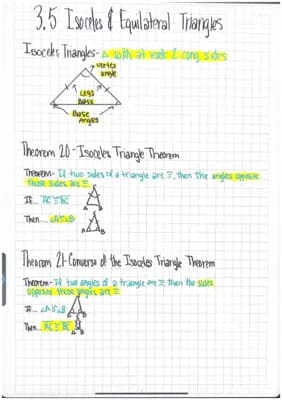 3.5 Isoceles & Equilateral Triangles
Isoceles Triangles- △ with at least 2 cong. sides
vertex
angle
Legs
Base
Base
Angles
Theorem 20-Isoceles Triangle Theorem
Theorem- If two sides of a triangle are ≅, then the angles opposite
those sides are ≅
If... AC≅BC
C
A B
Then... ∠A≅∠B
C
A B
Theorem 21-Converse of the Isoceles Triangle Theorem
Theorem- If two angles of a triangle are ≅, then the sides
opposite those angles are ≅
If... ∠A≅∠B
A B
Then... AC≅BC
A B